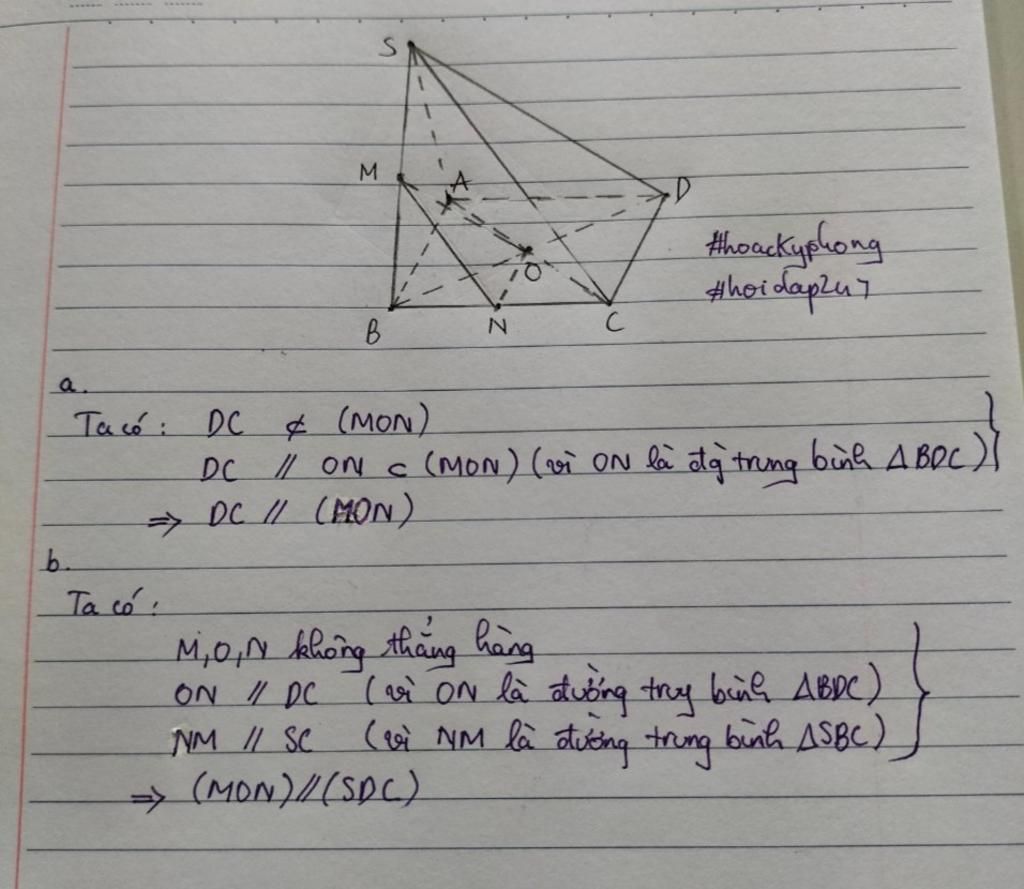 S
M
A
D
O
B
N
C
#hoackyphong
#hoidap247
a.
Ta có: DC ⊄ (MON)
DC // ON ⊂ (MON) (vì ON là đg trung bình ΔBDC)
⇒ DC // (MON)
b.
Ta có:
M,O,N không thẳng hàng
ON // DC (vì ON là đường truy bình ΔBDC)
NM // SC (vì NM là đường trung bình ΔSBC)
⇒ (MON)//(SDC)